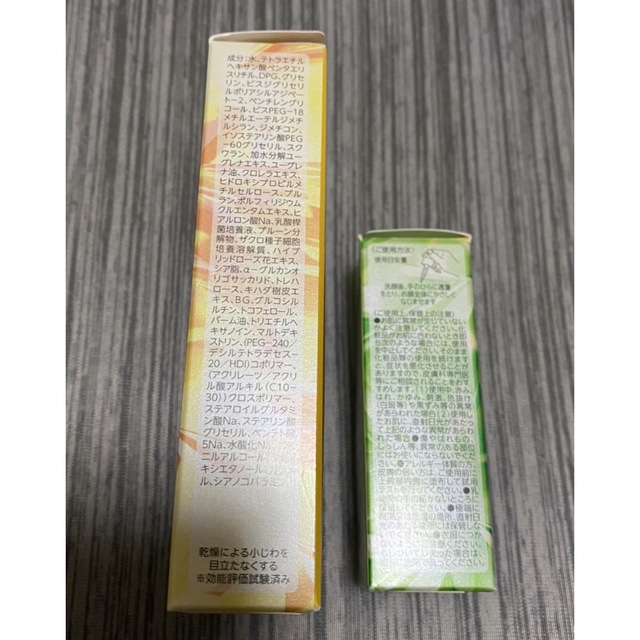 成分:水、テトラエチル
ヘキサン酸ペンタエリ
スリチル、DPG、グリセ
リン、ビスジグリセリ
ルポリアシルアジペー
ト-2、ペンチレングリ
コール、ビスPEG-18
メチルエーテルジメチ
ルシラン、ジメチコン、
イソステアリン酸PEG
-60グリセリル、スク
ワラン、加水分解ユー
グレナエキス、ユーグレ
ナ油、クロレラエキス、
ヒドロキシプロピルメ
チルセルロース、プル
ラン、ポルフィリジウム
クルエンタムエキス、ヒ
アルロン酸Na、乳酸桿
菌培養液、プルーン分
解物、ザクロ種子細胞
培養溶解質、ハイブ
リッドローズ花エキス、
シア脂、α-グルカンオ
リゴサッカリド、トレハ
ロース、キハダ樹皮エ
キス、BG、グルコシルル
チン、トコフェロール、
パーム油、トリエチルヘ
キサノイン、マルトデキ
ストリン、(PEG-240/
デシルテトラデセス-
20/HDI)コポリマー、
(アクリレーツ/アクリ
ル酸アルキル(C10-
30))クロスポリマー、
ステアロイルグルタミ
ン酸Na、ステアリン酸
グリセリル、ペンテト酸
5Na、水酸化
ニルアルコール、
キシエタノール、
ル、シアノコバラミン
乾燥による小じわを
目立たなくする
※効能評価試験済み
〈ご使用方法〉
使用目安量
洗顔後、手のひらに適量
をとり、お顔全体にやさしく
なじませます
〈ご使用上、保管上の注意〉
●お肌に異常が生じていない
かよく注意してください。化
粧品がお肌に合わないとき即
ち次のような場合には、使用
を中止してください。そのまま
化粧品類の使用を続けます
と、症状を悪化させることが
ありますので、皮膚科専門医
等にご相談されることをおす
すめします。(1)使用中、赤み、
はれ、かゆみ、刺激、色抜け
(白斑等)や黒ずみ等の異常
があらわれた場合(2)使用し
たお肌に、直射日光があたっ
て上記のような異常があらわ
れた場合●傷やはれもの、
しっしん等、異常のある部位
にはお使いにならないでくだ
さい。●アレルギー体質の方、
皮膚の弱い方は、ご使用前に
上腕部内側に塗布して試用
テストを行ってください。●乳
幼児の手の届かないところに
保管してください。●極端に
高温又は低温の場所、直射日
光のあたる場所には保管しな
いでください。●衣服につか
ないようにご注意ください。